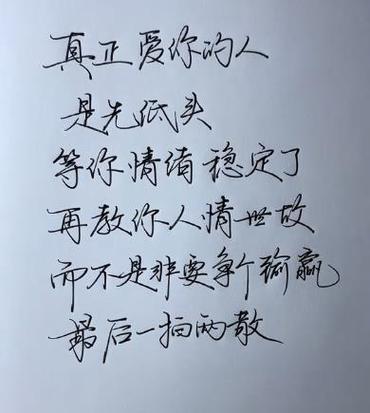 真正爱你的人
是先低头
等你情绪稳定了
再教你人情世故
而不是非要争个输赢
最后一拍两散